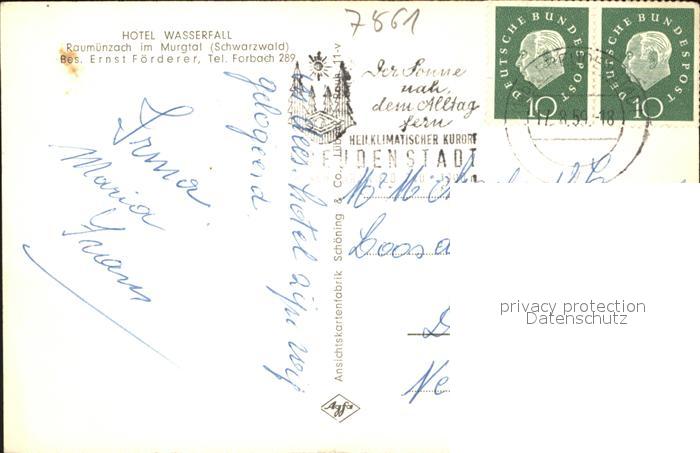 7861
HOTEL WASSERFALL
Raumünzach im Murgtal (Schwarzwald)
Bes. Ernst Förderer, Tel. Forbach 289
DEUTSCHE BUNDESPOST
10
DEUTSCHE BUNDESPOST
10
17.8.59.-18
Der Sonne
nah,
dem Alltag
fern
HEILKLIMATISCHER KURORT
EUDENSTADT
In dees hotel zijn wij
gelogeerd.
Irma
Maria
Yvan
Ansichtskartenfabrik Schöning & Co.,
Agfa
Loosa
Ne
privacy protection
Datenschutz